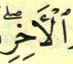 الْأَخِرِۖ